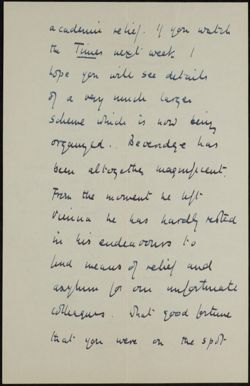 academic relief. If you watch
the Times next week I
hope you will see details
of a very much larger
scheme which is now being
organized. Beveridge has
been altogether magnificent.
From the moment he left
Vienna he has hardly rested
in his endeavours to
find means of relief and
asylum for our unfortunate
colleagues. What good fortune
that you were on the spot